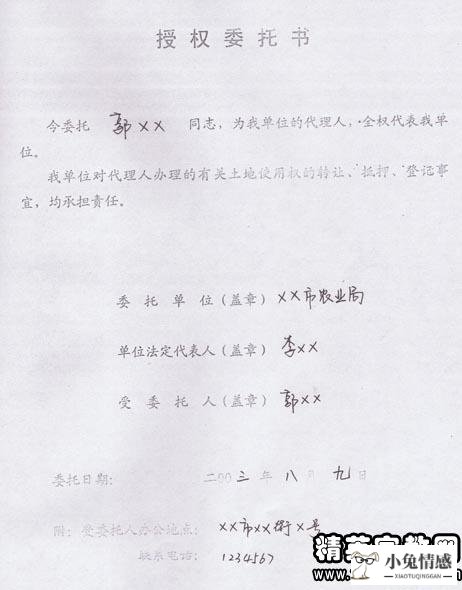 授权委托书
今委托 郭×× 同志，为我单位的代理人，全权代表我单
位。
我单位对代理人办理的有关土地使用权的转让、抵押、登记事
宜，均承担责任。
委托单位（盖章）××市农业局
单位法定代表人（盖章）李××
受委托人（盖章）郭××
委托日期： 二00三年八月九日
附：受委托人办公地点：××市××街×号
联系电话：1234567
小兔情感
XIAOTUQINGGAN